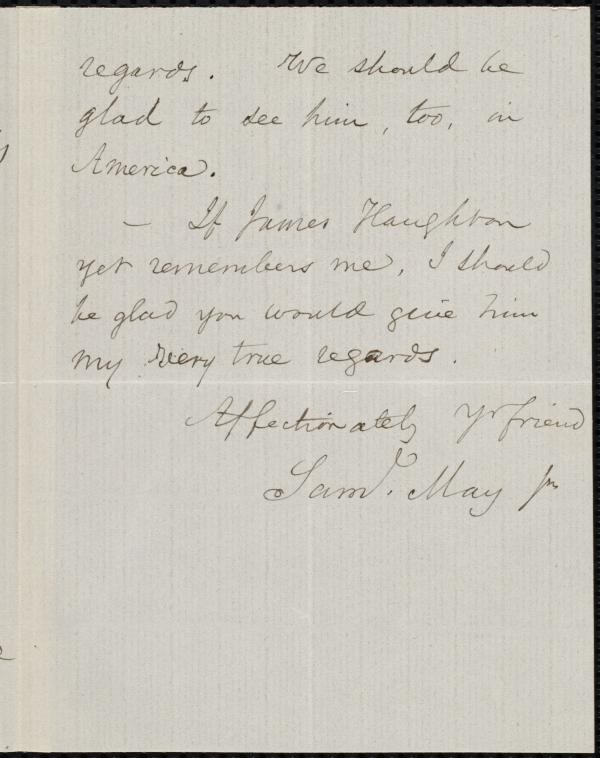 regards. We should be
glad to see him, too, in
America.
— If James Haughton
yet remembers me, I should
be glad you would give him
my very true regards.
Affectionately Yr friend
Saml. May Jr